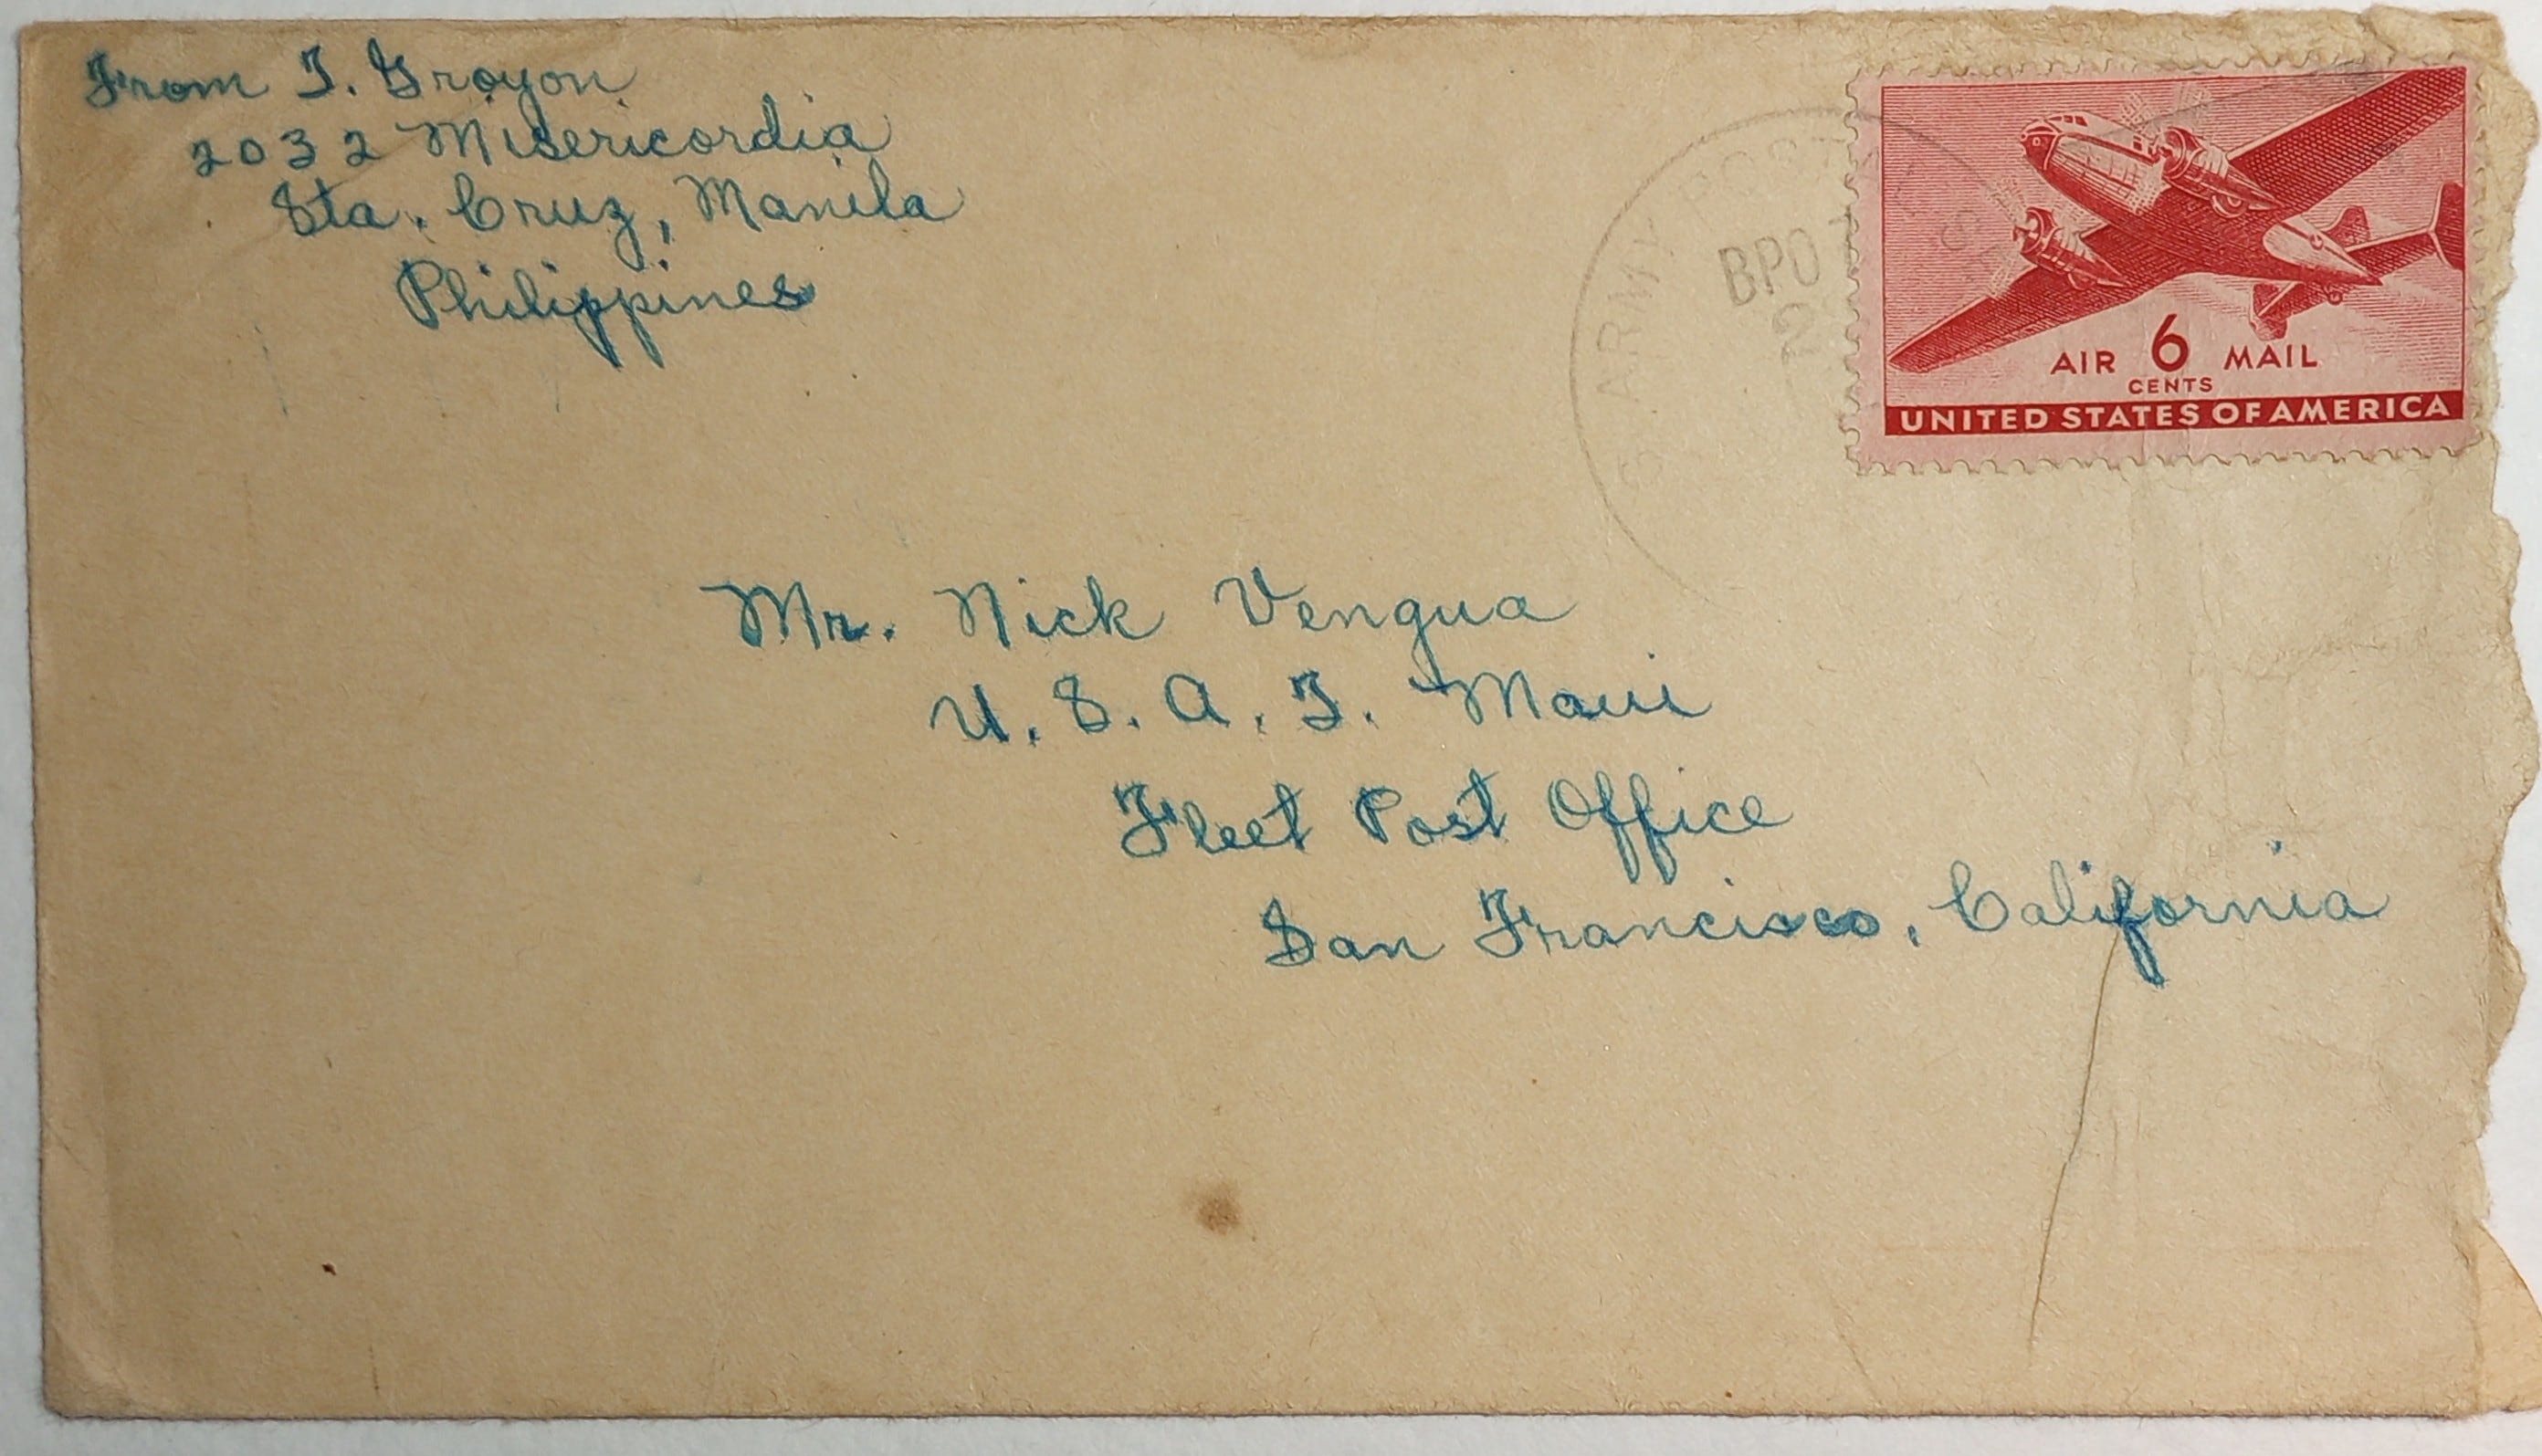 From T. Groyon
2032 Misericordia
Sta. Cruz, Manila
Philippines
ARMY POSTAL
BPO
2
AIR 6 MAIL
CENTS
UNITED STATES OF AMERICA
Mr. Nick Vengua
U. S. A. T. Maui
Fleet Post Office
San Francisco, California